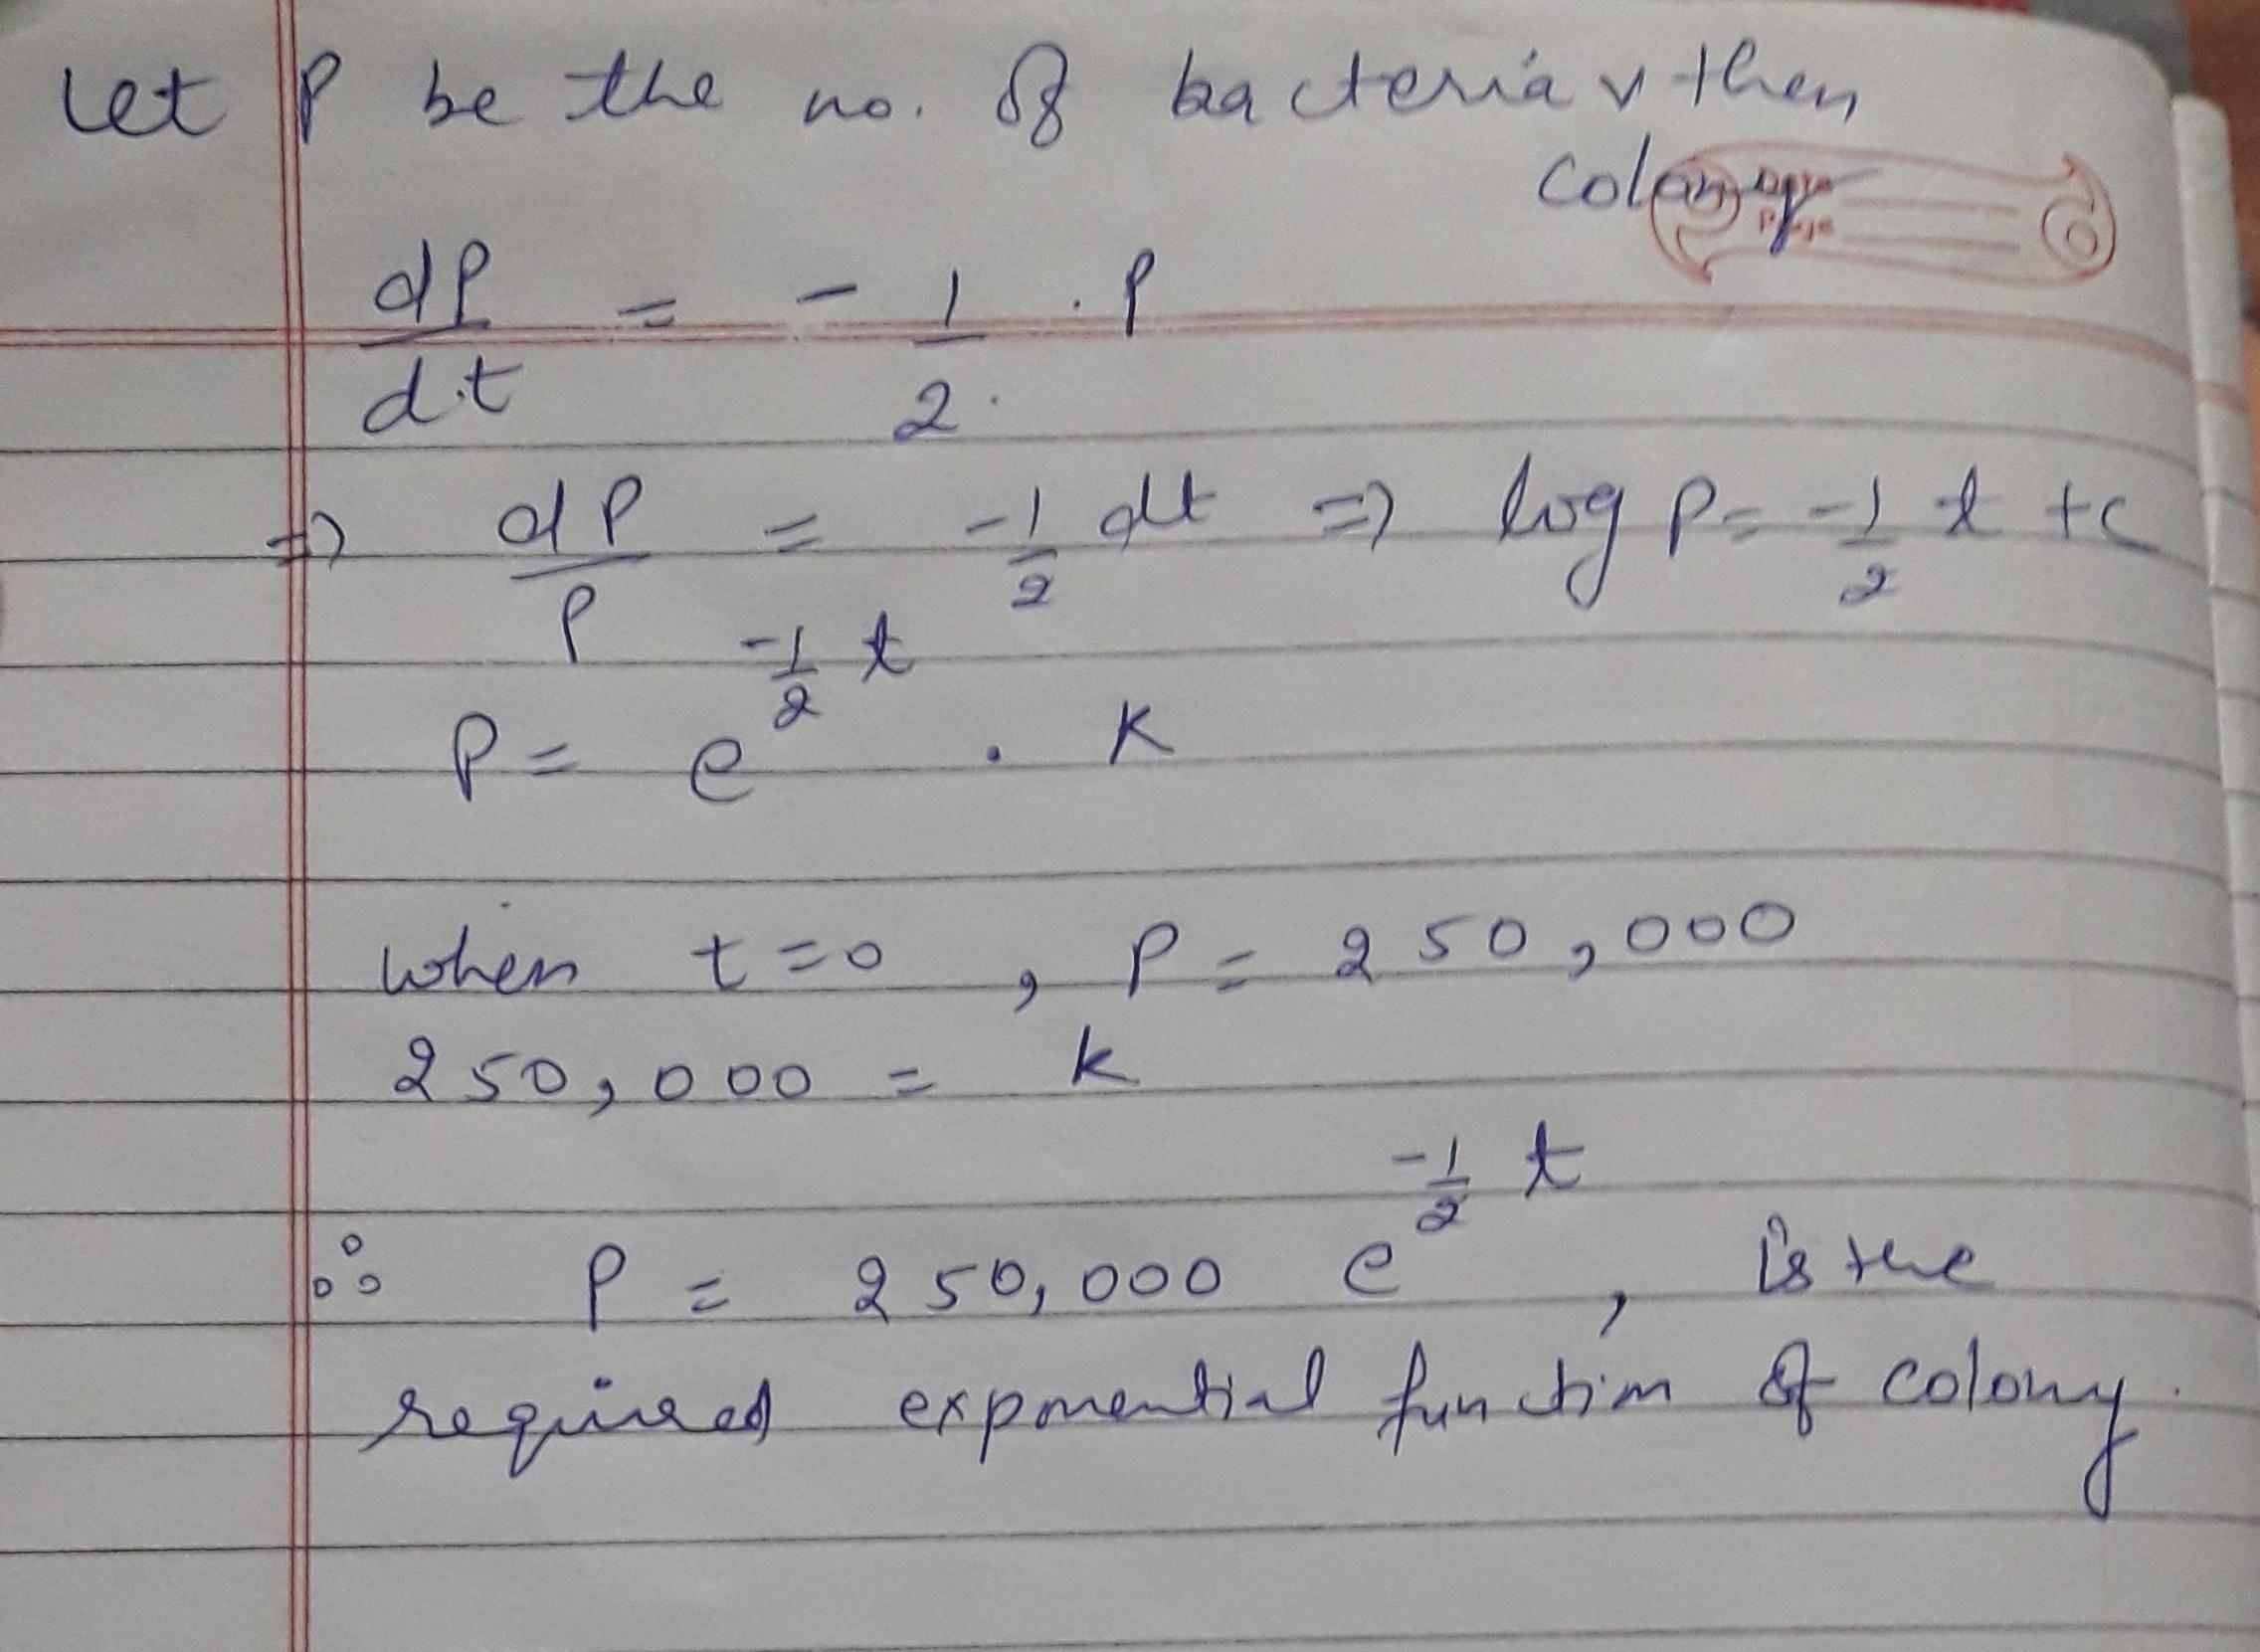 Let P be the no. of bacteria v then
colony
Date
Page
dP/d.t = - 1/2. . P
=> dP/P = -1/2 dt => log P = -1/2 t + c
P = e^(-1/2 t) . K
when t=0 , P = 250,000
250,000 = k
∴ P = 250,000 e^(-1/2 t) , is the
required exponential function of colony.